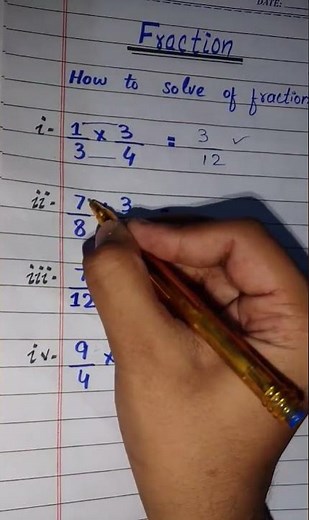 DATE:
Fraction
How to solve of fraction
i- 1/3 x 3/4 = 3/12 ✓
ii- 7/8 3
iii- 12
iv- 9/4 x